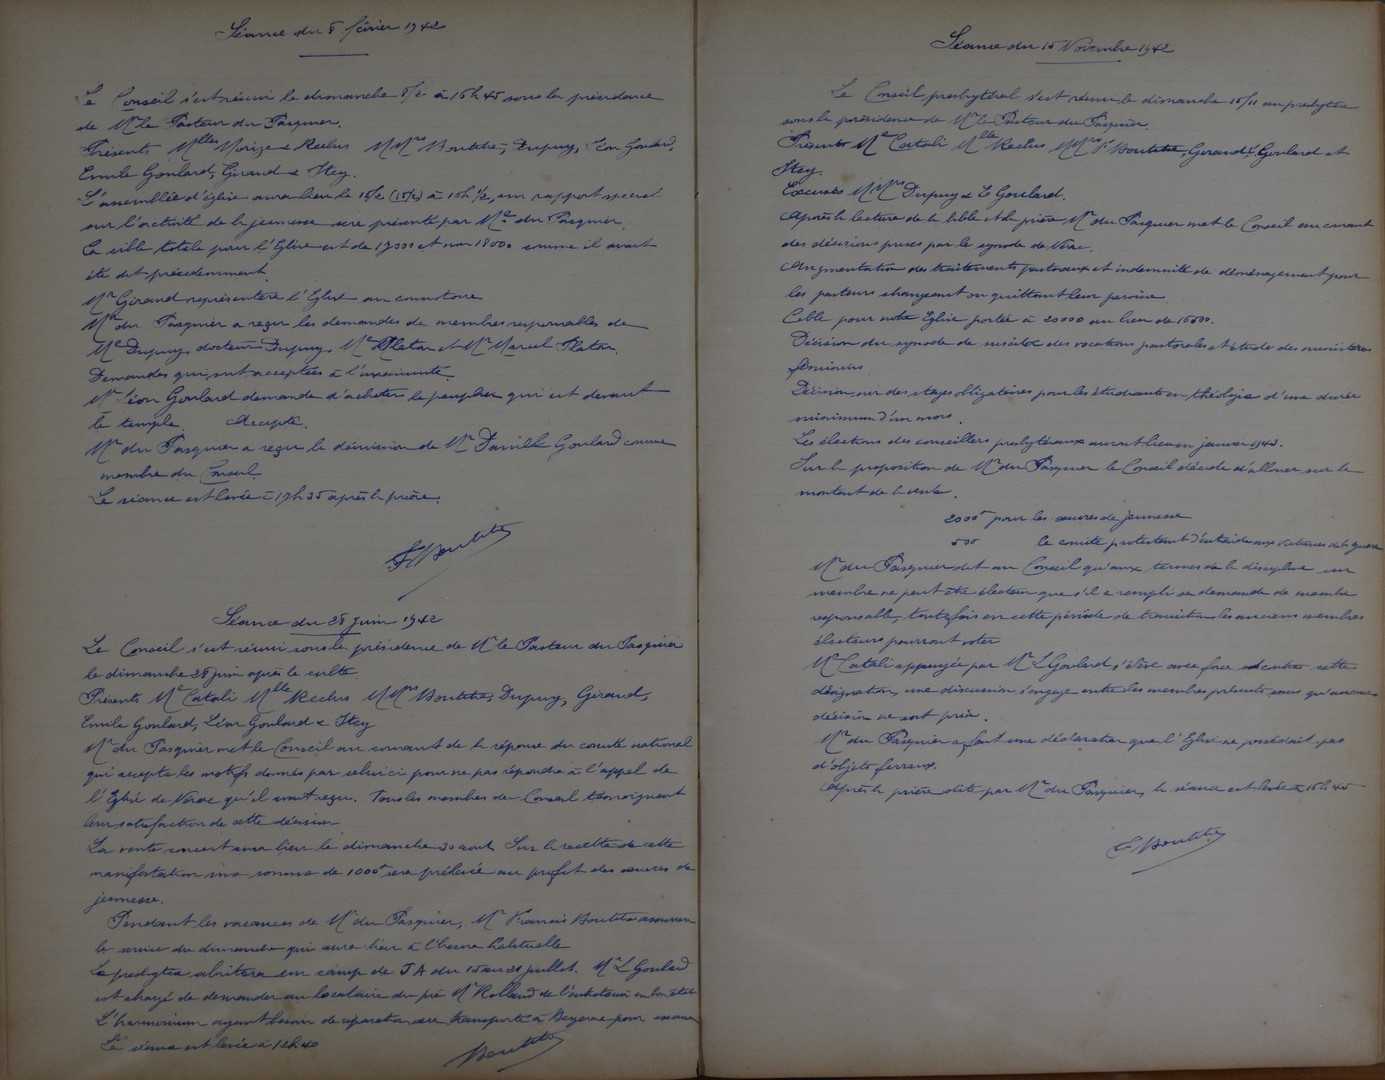 Séance du 8 février 1942
Le Conseil s'est réuni le dimanche 8/2 à 16h45 sous la présidence
de Mr le Pasteur du Pasquier.
Présents Mlles Morize & Reclus MMrs Boutitie, Dupuy, Léon Goulard,
Emile Goulard, Giraud & Itey.
L'assemblée d'église aura lieu le 15/2 à 10h 1/2, un rapport special
sur l'activité de la jeunesse sera présenté par Mr du Pasquier.
La cible totale pour l'Eglise est de 17000 et non 18000 comme il avait
été dit précédemment.
Mr Giraud représentera l'Eglise au consistoire
Mr du Pasquier a reçu les demandes de membres responsables de
Me Dupuy, docteur Dupuy, Me Platon et Mr Marcel Platon.
Demandes qui sont acceptées à l'unanimité.
Mr Léon Goulard demande d'acheter le peuplier qui est devant
le temple. Accepté.
Mr du Pasquier a reçu la démission de Mr Goulard comme
membre du Conseil.
La séance est levée à 17h35 après la prière.
Boutitie
Séance du 28 Juin 1942
Le Conseil s'est réuni sous la présidence de Mr le Pasteur du Pasquier
le dimanche 28 juin après le culte.
Présents Me Catali Mlle Reclus MMrs Boutitie, Dupuy, Giraud,
Emile Goulard, Léon Goulard & Itey
Mr du Pasquier met le Conseil au courant de la réponse du comité national
qui accepte les motifs donnés par celui ci pour ne pas répondre à l'appel de
l'Eglise de Nérac qu'il avait reçu. Tous les membres du Conseil témoignent
leur satisfaction de cette décision
La vente concert aura lieu le dimanche 30 août. Sur la recette de cette
manifestation une somme de 1000f sera prélevée au profit des œuvres de
jeunesse.
Pendant les vacances de Mr du Pasquier, Mr Francis Boutitie assurera
le service du dimanche qui aura lieu à l'heure habituelle
Le presbytère abritera un camp de J A du 15 au juillet. Mr L Goulard
est chargé de demander au locataire du pré Mr Rolland de l'entretenir en bon état
L'harmonium ayant besoin de réparation sera transporté à pour examen
La séance est levée à 12h40
Boutitie
Séance du 15 Novembre 1942
Le Conseil presbytéral s'est réuni le dimanche 15/11 au presbytère
sous la présidence de Mr le Pasteur du Pasquier.
Présents Me Catali Mlle Reclus MMrs Boutitie, Giraud, Goulard et
Itey.
Excusés MMrs Dupuy & Goulard.
Après la lecture de la bible et la prière Mr du Pasquier met le Conseil au courant
des décisions prises par le synode de Nérac.
Augmentation des traitements pastoraux et indemnité de déménagement pour
les pasteurs changeant ou quittant leur paroisse
Cible pour notre Eglise portée à 20000 au lieu de
Décision du synode de susciter des vocations pastorales et étude des ministères
féminins.
Décision sur des stages obligatoires pour les étudiants en théologie d'une durée
minimum d'un mois.
Les élections des conseillers presbytéraux auront lieu en janvier 1943.
Sur la proposition de Mr du Pasquier le Conseil décide d'allouer sur le
montant de la vente.
2000f pour les œuvres de jeunesse
500 le comité protestant d'entr'aide aux victimes de la guerre
Mr du Pasquier dit au Conseil qu'aux termes de la discipline un
membre ne peut être électeur que s'il a rempli sa demande de membre
responsable, toutefois en cette période de transition les anciens membres
électeurs pourront voter
Me Catali appuyée par Mr L Goulard s'élève avec force contre cette
désignation, une discussion s'engage entre les membres présents sans qu'aucune
décision ne soit prise.
Mr du Pasquier a fait une déclaration que l'Eglise ne possédait pas
d'objets ferreux.
Après la prière dite par Mr du Pasquier, la séance est levée à 16h45
Boutitie